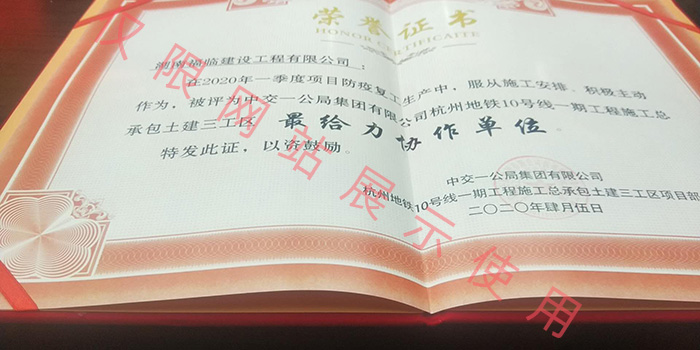 荣誉证书
HONOR CERTIFICAITE
湖南福临建设工程有限公司：
在2020年一季度项目防疫复工生产中，服从施工安排、积极主动
作为，被评为中交一公局集团有限公司杭州地铁10号线一期工程施工总
承包土建三工区 最给力协作单位。
特发此证，以资鼓励。
中交一公局集团有限公司
杭州地铁10号线一期工程施工总承包土建三工区项目部
二〇二〇年肆月伍日
仅限网站展示使用